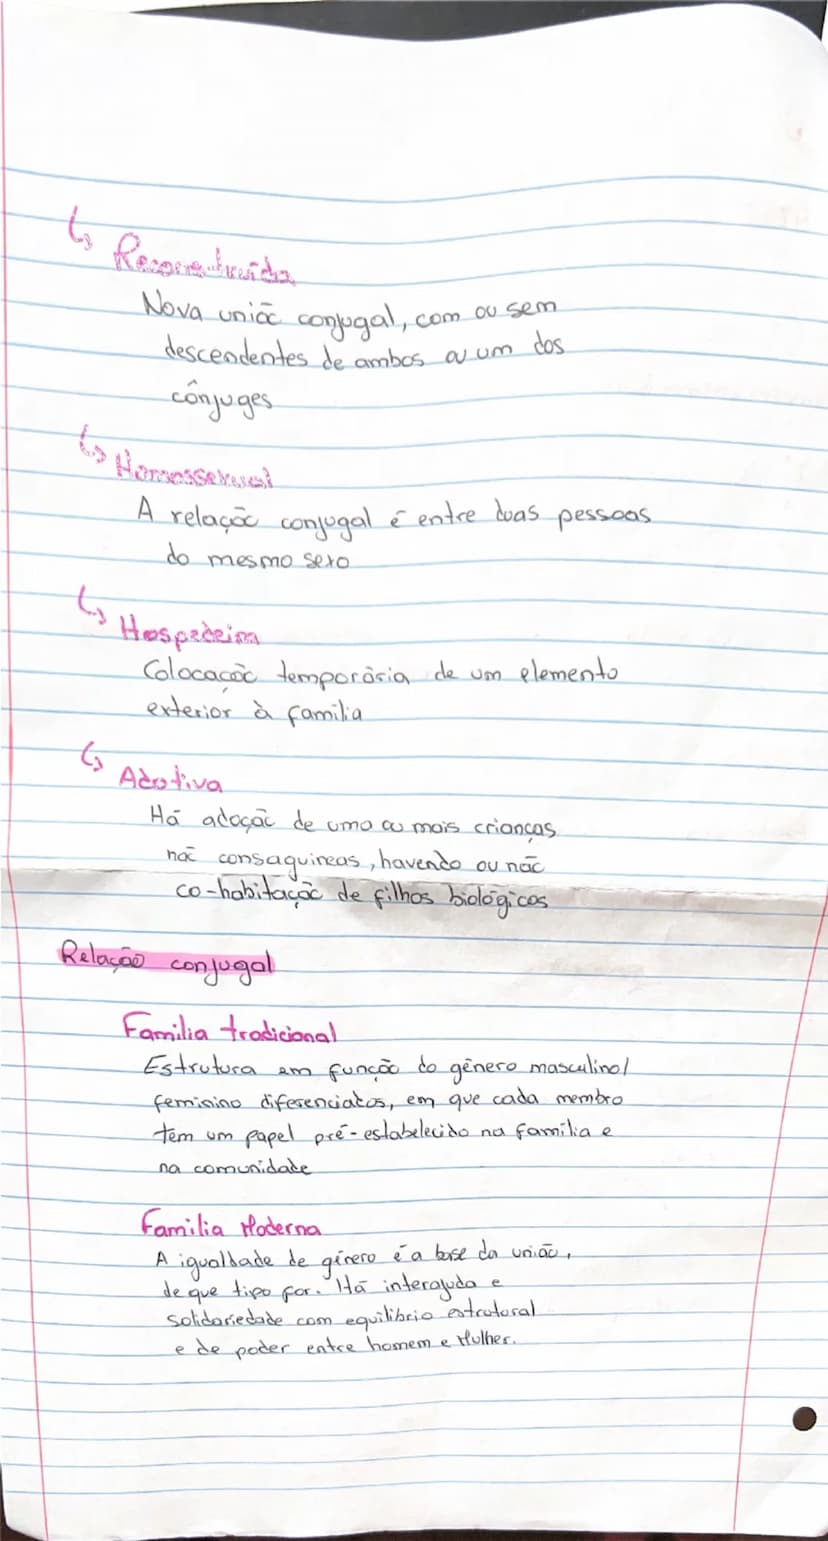 ↳ Reconstruída
Nova união conjugal, com ou sem
descendentes de ambos ou um dos
cônjuges
↳ Homossexual
A relação conjugal é entre duas pessoas
do mesmo sexo
↳ Hospedeira
Colocação temporária de um elemento
exterior à familia
↳ Adotiva
Há adoção de uma ou mais crianças
não consaguineas, havendo ou não
co-habitação de filhos biológicos
Relação conjugal
Familia tradicional
Estrutura em função do género masculino/
feminino diferenciados, em que cada membro
tem um papel pré-estabelecido na familia e
na comunidade
Familia Moderna
A igualdade de género é a base da união,
de que tipo for. Há interajuda e
solidariedade com equilibrio estrutural
e de poder entre homem e Mulher.